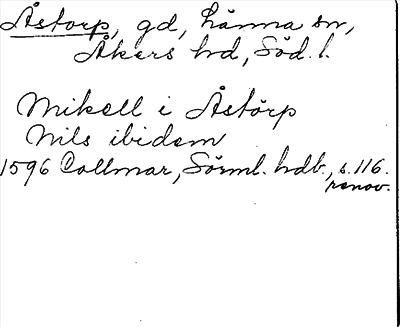 Åstorp, gd, Länna sn,
Åkers hd, Söd. l.
Mikell i Åstörp
Nils ibidem
1596 Collmar, Sörml. hdb., s. 116.
renov.